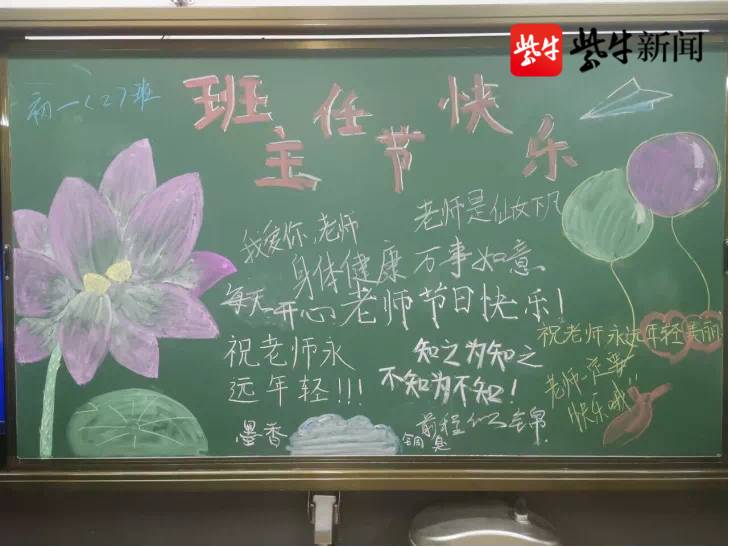 紫牛 紫牛新闻
初一(2)班
班主任节快乐
老师是仙女下凡
我爱你,老师
身体健康 万事如意
每天开心 老师节日快乐!
祝老师永远年轻美丽
祝老师永
远年轻!!!
知之为知之
不知为不知!
老师一定要
快乐哦!!
墨香
前程似锦